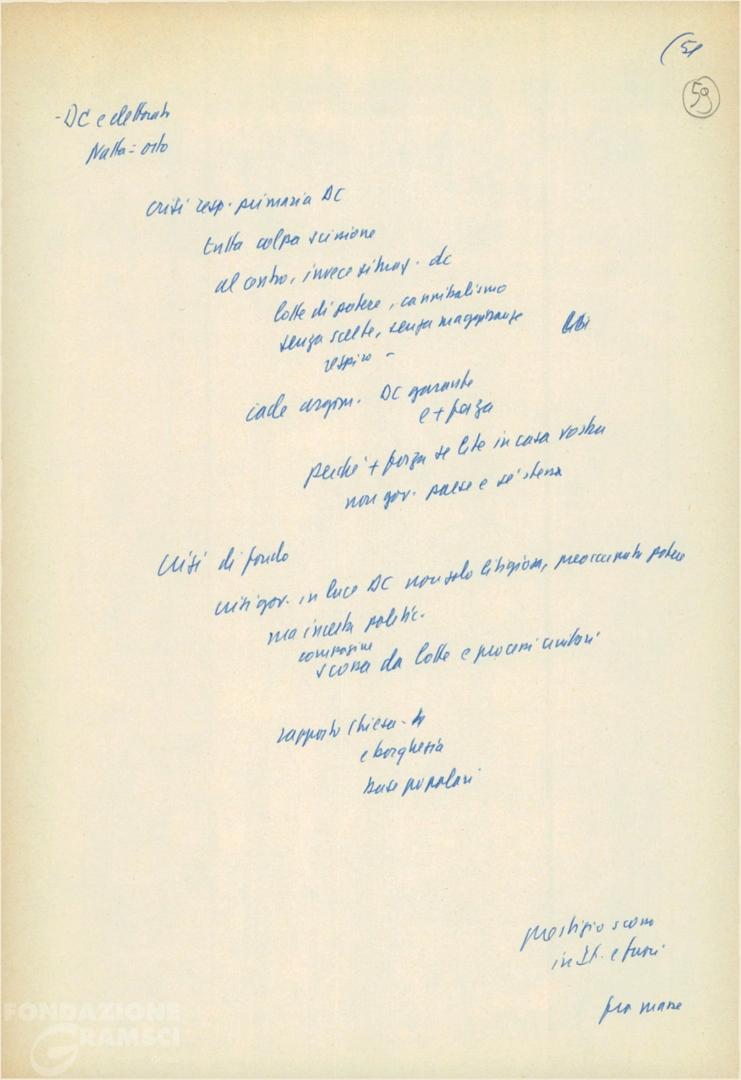 (51
59
- DC e elettorato
Natta =
crisi resp. primaria DC
tutta colpa scissione
al contro, invece dc
lotte di potere, cannibalismo
senza scelte, senza maggioranze
respiro -
cade argom. DC garante
e + forza
perché + forza se lite in casa vostra
non gov. paese e se stessa
crisi di fondo
crisi gov. in luce DC non solo litigiosa, preoccupata potere
ma incerta politic.
compagine
scossa da lotte e processi unitari
rapporto Chiesa - dc
e borghesia
base popolari
prestigio scosso
in It. e fuori
fra masse
FONDAZIONE
GRAMSCI